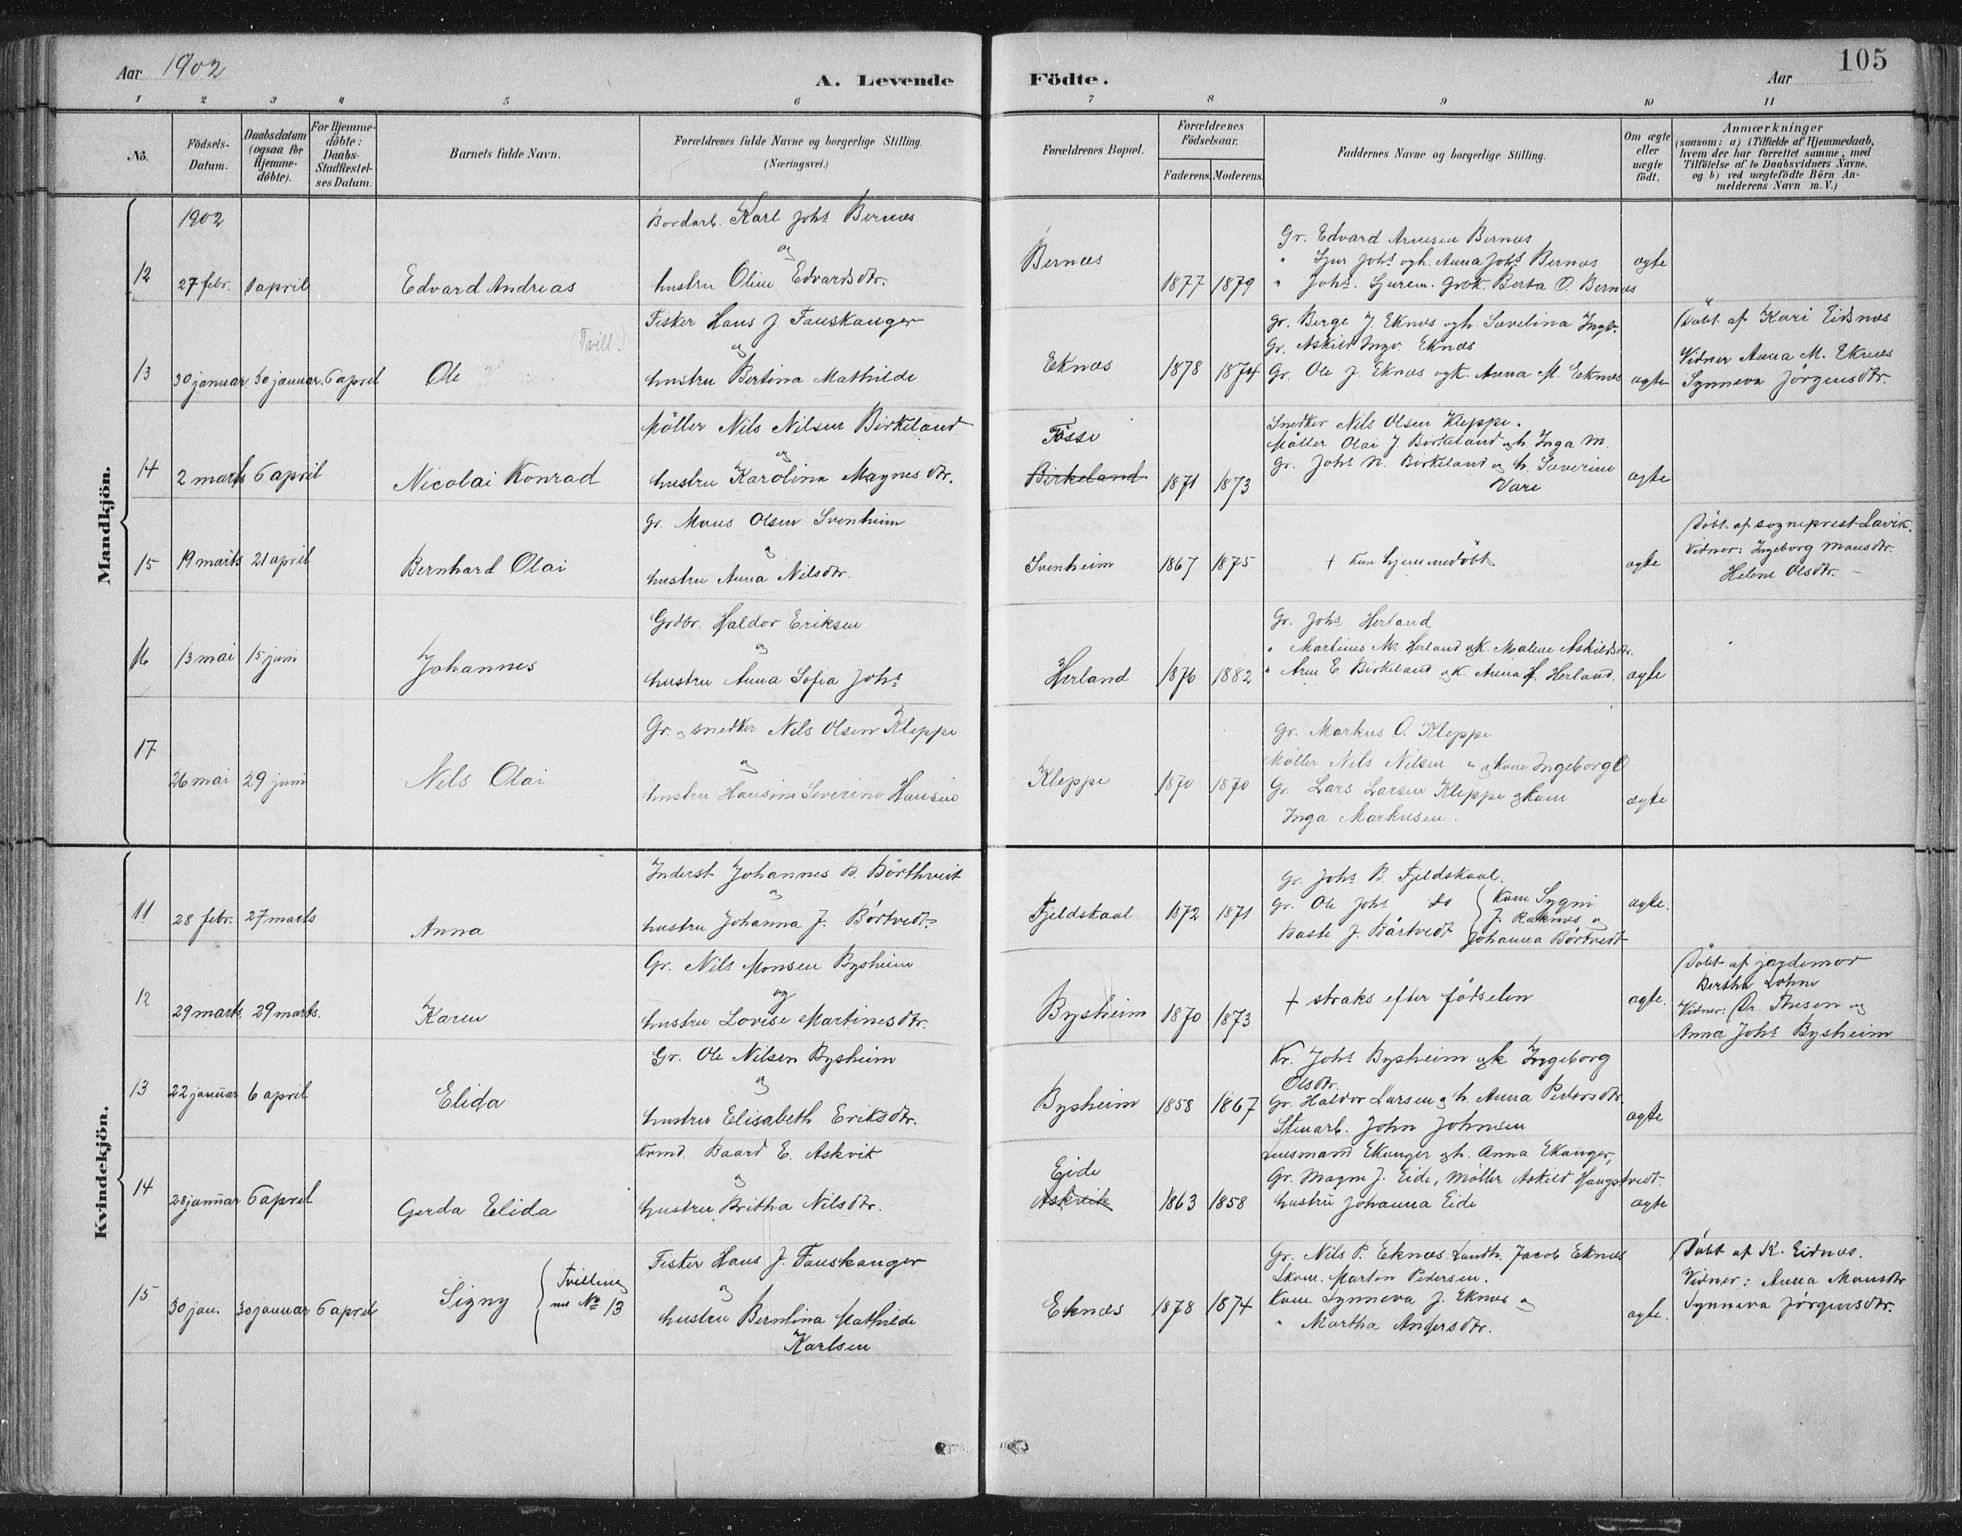 Aar 1902
A. Levende Födte.
Aar
105
1 2 3 4 5 6 7 8 9 10 11
No.
Födsels-Datum.
Daabsdatum (ogsaa for Hjemme-döbte).
For Hjemme-döbte: Daabs-Stadfæstel-ses Datum.
Barnets fulde Navn.
Forældrenes fulde Navne og borgerlige Stilling. (Næringsvei.)
Forældrenes Bopæl.
Forældrenes Födselsaar.
Faderens. Moderens.
Faddernes Navne og borgerlige Stilling.
Om ægte eller uægte födt.
Anmærkninger
(saasom: a) i Tilfælde af Hjemmedaab, hvem der har forrettet samme, med Tilföielse af to Daabsvidners Navne, og b) ved uægtefödte Börn An-melderens Navn m. V.)
Mandkjön.
1902
12 27 febr. 1 april Edvard Andreas
Bordarb. Karl Johs Bernæs
og
hustru Oline Edvardsdtr.
Bernæs 1877 1879
Gr. Edvard Arnesen Bernæs
" Sjur Johs og h. Anna Johs Bernæs
" Johs. Sjursen. Grbk. Berta O. Bernæs
ægte
13 30 januar 30 januar. 6 april Ole (Tvill.)
Fisker Hans J. Fauskanger
og
hustru Bertina Mathilde
Eknæs 1878 1874
Gr. Berge J. Eknæs og h. Sævelina Ingv.
Gr. Askild Ingv. Eknæs
Gr. Ole J. Eknæs og k. Anna M. Eknæs
ægte
Döbt af Kari Eidsnæs
Vidner Anna M. Eknæs
Synneva Jörgensdtr.
14 2 marts 6 april Nicolai Konrad
Möller Nils Nilsen Birkeland
og
hustru Karolina Magnesdtr.
Fosse
Birkeland 1871 1873
Snedker Nils Olsen Kleppe.
Möller Olai J. Birkeland og h. Inga M.
Gr. Johs N. Birkeland og h. Severine
Vare
ægte
15 19 marts 21 april Bernhard Olai
Gr. Mons Olsen Svenheim
og
hustru Anna Nilsdtr.
Svenheim 1867 1875
† Kun hjemmedöbt
ægte
Döbt af sogneprest Lavik.
Vidner: Ingeborg Monsdtr.
Helene Olsdtr. –
16 13 mai 15 juni Johannes
Grdbr. Haldor Eriksen
og
hustru Anna Sofia Johs
Herland 1876 1882
Gr. Johs Herland
" Martines M. Herland og K. Malene Askildsdtr.
" Arne E. Birkeland og K. Anna H. Herland.
ægte
17 26 mai 29 juni Nils Olai
Gr. og snedker Nils Olsen Kleppe
og
hustru Hansine Severine Hansen
Kleppe 1870 1870
Gr. Markus O. Kleppe
Möller Nils Nilsen " og kone Ingeborg O
Gr. Lars Larsen Kleppe og kone
Inga Markusen.
ægte
Kvindekjön.
11 28 febr. 27 marts Anna
Inderst Johannes B. Börthveit
og
hustru Johanna J. Börtvedt
Fjeldskaal 1872 1871
Gr. Johs B. Fjeldskaal.
Gr. Ole Johs do Kone Sygni
J. Raknes og
Baste J. Bartvedt Johanna Börtvedt
ægte.
12 29 marts. 29 marts. Karen
Gr. Nils Monsen Bysheim
og
hustru Lovise Martinesdtr.
Bysheim 1870 1873
† straks efter födselen
ægte.
Döbt af jordemor
Bertha Lohne
Vidner: Dr. Thesen og
Anna Johs Bysheim
13 22 januar 6 april Elida
Gr. Ole Nilsen Bysheim
og
hustru Elisabeth Eriksdtr.
Bysheim 1858 1867
Kr. Johs Bysheim og k Ingeborg
Olsdtr.
Gr. Haldor Larsen og h. Anna Pedersdtr
Stenarb. John Johnsen
ægte
14 28 januar 6 april Gerda Elida
Krmd. Baard E. Askvik
og
hustru Britha Nilsdtr.
Eide
Askvik 1863 1858
Lensmand Ekanger og h. Anna Ekanger,
Gr. Magne J. Eide, Möller Askild Haugstvedt.
hustru Johanna Eide
ægte
15 30 jan. 30 januar 6 april Signy
Tvilling
med No 13
Fisker Hans J. Fauskanger
og
hustru Berntina Mathilde
Karlsen
Eknæs 1878 1874
Gr. Nils P. Eknæs. Landh. Jacob Eknæs
Skom. Martin Pedersen.
Kone Synneva J. Eknæs og
" Martha Andersdtr.
ægte.
Döbt af K. Eidnæs.
Vidner: Anna Monsdtr
Synneva Jörgensdtr.